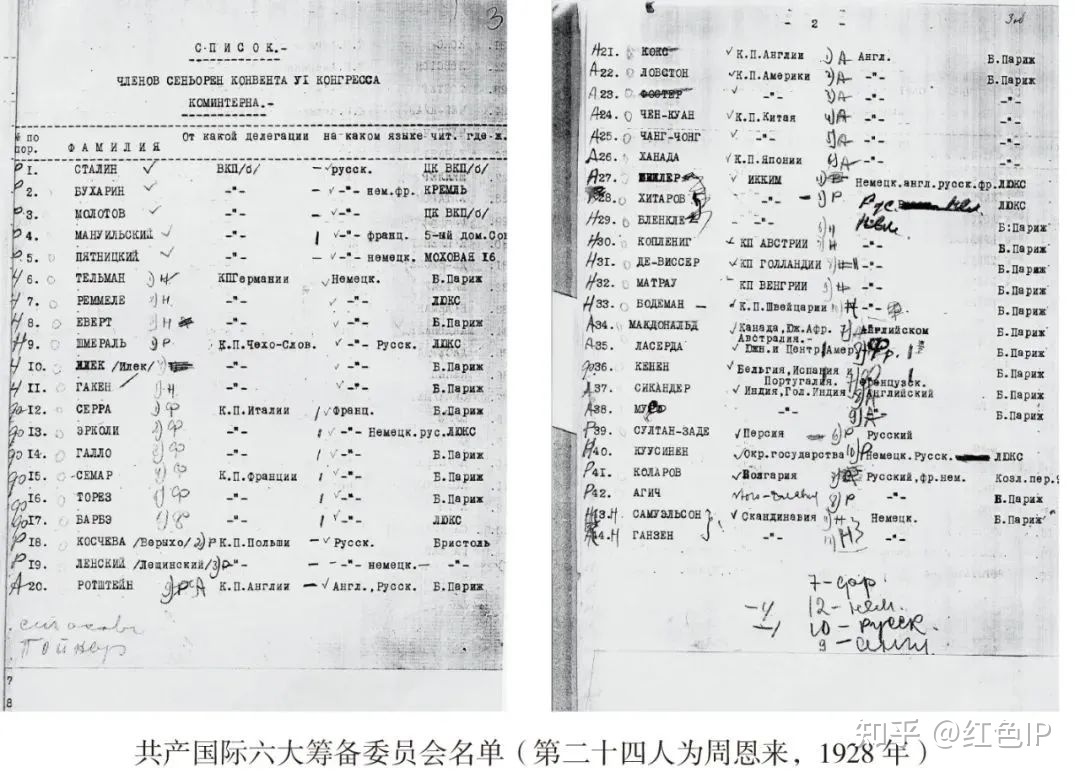 3
С П И С О К.-
ЧЛЕНОВ СЕНЬОРЕН КОНВЕНТА УI КОНГРЕССА
КОМИНТЕРНА.-
№ по пор. ФАМИЛИЯ От какой делегации на каком языке чит. где-ж.
Р 1. СТАЛИН ВКП/б/ русск. ЦК ВКП/б/
Р 2. БУХАРИН -"- -"- нем.фр. КРЕМЛЬ
Р 3. МОЛОТОВ -"- -"- ЦК ВКП/б/
Р 4. МАНУИЛЬСКИЙ -"- -"- франц. 5-ый дом.Сов
Р 5. ПЯТНИЦКИЙ -"- -"- немецк. МОХОВАЯ 16
Н 6. ТЕЛЬМАН Н КПГермании Немецк. Б.Париж
Н 7. РЕММЕЛЕ Н -"- -"- ЛЮКС
Н 8. ЕВЕРТ Н -"- -"- Б.Париж
Н 9. ШМЕРАЛЬ Р К.П.Чехо-Слов. -"- Русск. ЛЮКС
Н 10. /Илек/ -"- -"- Б.Париж
Н 11. ГАКЕН Н -"- -"- Б.Париж
12. СЕРРА Ф К.П.Италии Франц. Б.Париж
13. ЭРКОЛИ Ф -"- -"- Немецк.рус. ЛЮКС
14. ГАЛЛО Ф -"- -"- Б.Париж
15. СЕМАР Ф К.П.Франции -"- Б.Париж
16. ТОРЕЗ Ф -"- -"- Б.Париж
17. БАРБЭ Ф -"- -"- ЛЮКС
Р 18. КОСЧЕВА /Верыхо/ Р К.П.Польши Русск. Бристоль
Р 19. ЛЕНСКИЙ /Лещинский/ Р -"- -"- немецк. -"-
А 20. РОТШТЕЙН К.П.Англии Англ.,Русск. Б.Париж
7
8
- 2 -
А 21. КОКС К.П.Англии А Англ. Б.Париж
А 22. ЛОВСТОН К.П.Америки А -"- Б.Париж
А 23. ФОСТЕР -"- А -"- -"-
А 24. ЧЕН-КУАН К.П.Китая А -"- -"-
А 25. ЧАНГ-ЧОНГ -"- А -"- -"-
А 26. ХАНАДА К.П.Японии А -"- -"-
27. ИККИМ Немецк.англ.русск.фр. ЛЮКС
28. ХИТАРОВ -"- Р Рус. ЛЮКС
Н 29. БЛЕНКЛЕ -"- Б:Париж
Н 30. КОПЛЕНИГ КП АВСТРИИ Н -"- Б.Париж
Н 31. ДЕ-ВИССЕР КП ГОЛЛАНДИИ Н -"- Б.Париж
Н 32. МАТРАУ КП ВЕНГРИИ Н -"- Б.Париж
Н 33. БОДЕМАН К.П.Швейцарии Н -"- Б.Париж
А 34. МАКДОНАЛЬД Канада,Юж.Афр. Австралия.- Английском Б.Париж
А 35. ЛАСЕРДА Южн.и Центр.Амер. Б.Париж
36. КЕНЕН Бельгия,Испания и Португалия. Французск. Б.Париж
А 37. СИКАНДЕР Индия,Гол.Индия Английский Б.Париж
А 38. -"- А -"- Б.Париж
Р 39. СУЛТАН-ЗАДЕ Персия Р Русский Б.Париж
Н 40. КУУСИНЕН Окр.государства Немецк.Русск. ЛЮКС
Р 41. КОЛАРОВ Болгария Русский,фр.нем. Козл.пер.
Р 42. АГИЧ Р -"- Б.Париж
43.Н САМУЭЛЬСОН Скандинавия Н Немецк. Б.Париж
44.Н ГАНЗЕН -"- Н -"-
7-фр.
12-нем.
10-русск.
9-англ.
知乎 @红色IP
共产国际六大筹备委员会名单（第二十四人为周恩来，1928年）